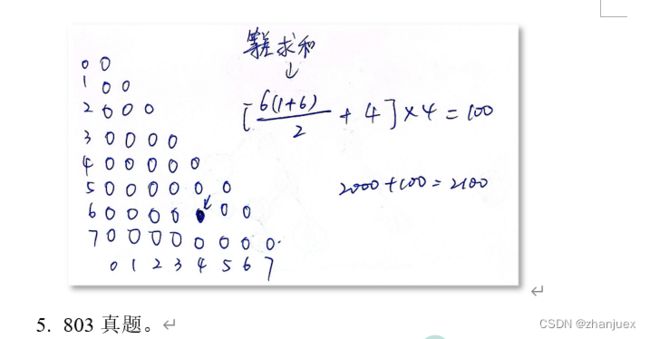 等差求和
↓
[6(1+6)/2 + 4]×4=100
2000+100=2100
0 0
1 0 0
2 0 0 0
3 0 0 0 0
4 0 0 0 0 0
5 0 0 0 0 0 0
6 0 0 0 0 0 0 0
7 0 0 0 0 0 0 0 0
0 1 2 3 4 5 6 7
5. 803 真题。
CSDN @zhanjuex